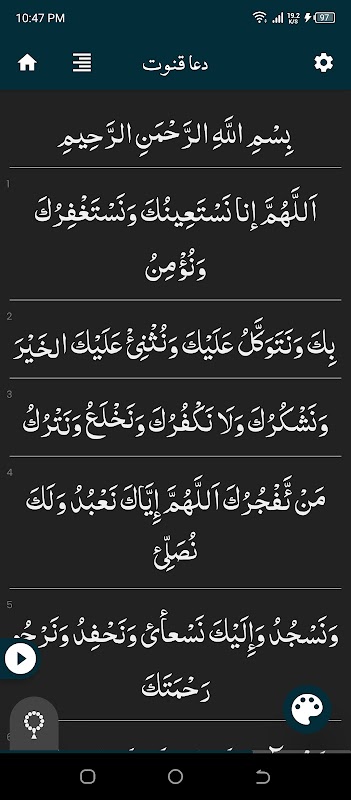 10:47 PM
19.2 K/S
97
دعا قنوت
بِسْمِ اللَّهِ الرَّحْمَنِ الرَّحِيمِ
1
اَللَّهُمَّ إنا نَسْتَعِينُكَ وَنَسْتَغْفِرُكَ
وَنُؤْمِنُ
2
بِكَ وَنَتَوَكَّلُ عَلَيْكَ وَنُثْنِئْ عَلَيْكَ الخَيْرَ
3
وَنَشْكُرُكَ وَلَا نَكْفُرُكَ وَنَخْلَعُ وَنَتْرُكُ
4
مَنْ ئَّفْجُرُكَ اَللَّهُمَّ إِيَّاكَ نَعْبُدُ وَلَكَ
نُصَلِّئ
5
وَنَسْجُدُ وَإِلَيْكَ نَسْعأئ وَنَحْفِدُ
رَحْمَتَكَ
6